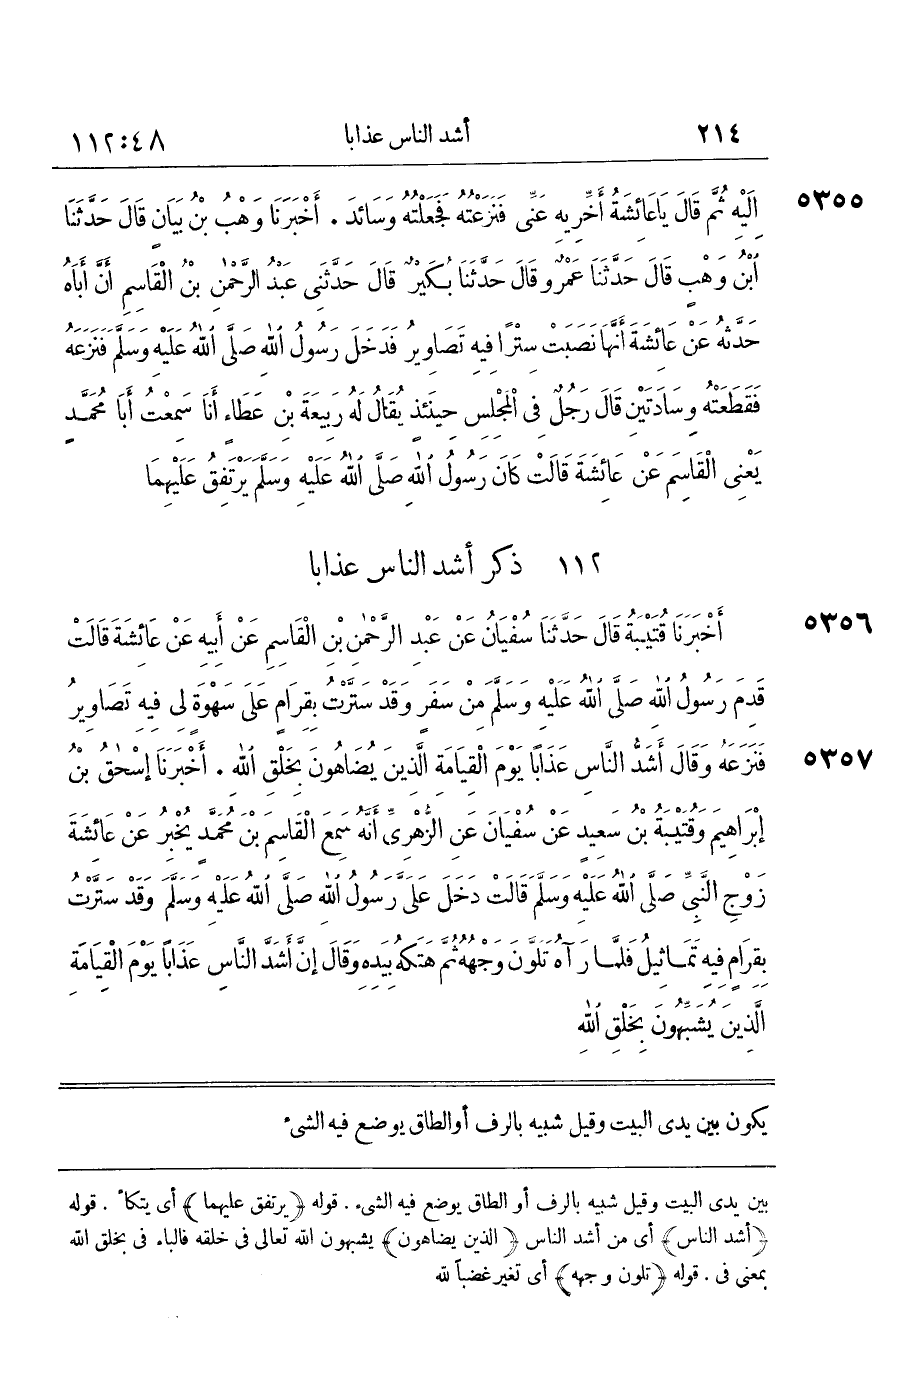 ٢١٤ أشد الناس عذابا ٤٨:١١٢
٥٣٥٥ إِلَيْهِ ثُمَّ قَالَ يَاعَائِشَةُ أَخِّرِيهِ عَنِّي فَنَزَعْتُهُ فَجَعَلْتُهُ وَسَائِدَ . أَخْبَرَنَا وَهْبُ بْنُ بَيَانٍ قَالَ حَدَّثَنَا
ابْنُ وَهْبٍ قَالَ حَدَّثَنَا عَمْرٌو قَالَ حَدَّثَنَا بُكَيْرٌ قَالَ حَدَّثَنِي عَبْدُ الرَّحْمٰنِ بْنُ الْقَاسِمِ أَنَّ أَبَاهُ
حَدَّثَهُ عَنْ عَائِشَةَ أَنَّهَا نَصَبَتْ سِتْرًا فِيهِ تَصَاوِيرُ فَدَخَلَ رَسُولُ اللهِ صَلَّى اللهُ عَلَيْهِ وَسَلَّمَ فَنَزَعَهُ
فَقَطَعَتْهُ وِسَادَتَيْنِ قَالَ رَجُلٌ فِى الْمَجْلِسِ حِينَئِذٍ يُقَالُ لَهُ رَبِيعَةَ بْنِ عَطَاءٍ أَنَا سَمِعْتُ أَبَا مُحَمَّدٍ
يَعْنِى الْقَاسِمَ عَنْ عَائِشَةَ قَالَتْ كَانَ رَسُولُ اللهِ صَلَّى اللهُ عَلَيْهِ وَسَلَّمَ يَرْتَفِقُ عَلَيْهِمَا
١١٢ ذكر أشد الناس عذابا
٥٣٥٦ أَخْبَرَنَا قُتَيْبَةُ قَالَ حَدَّثَنَا سُفْيَانُ عَنْ عَبْدِ الرَّحْمٰنِ بْنِ الْقَاسِمِ عَنْ أَبِيهِ عَنْ عَائِشَةَ قَالَتْ
قَدِمَ رَسُولُ اللهِ صَلَّى اللهُ عَلَيْهِ وَسَلَّمَ مِنْ سَفَرٍ وَقَدْ سَتَّرْتُ بِقِرَامٍ عَلَى سَهْوَةٍ لِى فِيهِ تَصَاوِيرُ
٥٣٥٧ فَنَزَعَهُ وَقَالَ أَشَدُّ النَّاسِ عَذَابًا يَوْمَ الْقِيَامَةِ الَّذِينَ يُضَاهُونَ بِخَلْقِ اللهِ . أَخْبَرَنَا إِسْحٰقُ بْنُ
إِبْرَاهِيمَ وَقُتَيْبَةُ بْنُ سَعِيدٍ عَنْ سُفْيَانَ عَنِ الزُّهْرِىِّ أَنَّهُ سَمِعَ الْقَاسِمَ بْنَ مُحَمَّدٍ يُخْبِرُ عَنْ عَائِشَةَ
زَوْجِ النَّبِىِّ صَلَّى اللهُ عَلَيْهِ وَسَلَّمَ قَالَتْ دَخَلَ عَلَىَّ رَسُولُ اللهِ صَلَّى اللهُ عَلَيْهِ وَسَلَّمَ وَقَدْ سَتَّرْتُ
بِقِرَامٍ فِيهِ تَمَاثِيلُ فَلَمَّا رَآهُ تَلَوَّنَ وَجْهُهُ ثُمَّ هَتَكَهُ بِيَدِهِ وَقَالَ إِنَّ أَشَدَّ النَّاسِ عَذَابًا يَوْمَ الْقِيَامَةِ
الَّذِينَ يُشَبِّهُونَ بِخَلْقِ اللهِ
يكون بين يدى البيت وقيل شبيه بالرف أو الطاق يوضع فيه الشىء
بين يدى البيت وقيل شبيه بالرف أو الطاق يوضع فيه الشىء . قوله ﴿يرتفق عليهما﴾ أى يتكأ . قوله
﴿أشد الناس﴾ أى من أشد الناس ﴿الذين يضاهون﴾ يشبهون الله تعالى فى خلقه فالباء فى بخلق الله
بمعنى فى . قوله ﴿تلون وجهه﴾ أى تغير غضباً لله